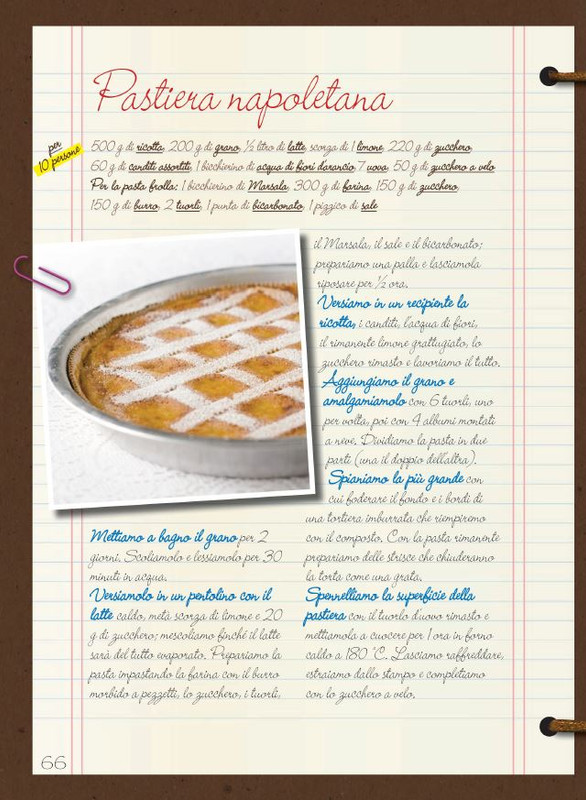 Pastiera napoletana
per
10 persone
500 g di ricotta, 200 g di grano, ½ litro di latte, scorza di 1 limone, 220 g di zucchero,
60 g di canditi assortiti, 1 bicchierino di acqua di fiori d'arancio, 7 uova, 50 g di zucchero a velo
Per la pasta frolla: 1 bicchierino di Marsala, 300 g di farina, 150 g di zucchero,
150 g di burro, 2 tuorli, 1 punta di bicarbonato, 1 pizzico di sale
Mettiamo a bagno il grano per 2
giorni. Scoliamolo e lessiamolo per 30
minuti in acqua.
Versiamolo in un pentolino con il
latte caldo, metà scorza di limone e 20
g di zucchero; mescoliamo finché il latte
sarà del tutto evaporato. Prepariamo la
pasta impastando la farina con il burro
morbido a pezzetti, lo zucchero, i tuorli,
il Marsala, il sale e il bicarbonato;
prepariamo una palla e lasciamola
riposare per ½ ora.
Versiamo in un recipiente la
ricotta, i canditi, l'acqua di fiori,
il rimanente limone grattugiato, lo
zucchero rimasto e lavoriamo il tutto.
Aggiungiamo il grano e
amalgamiamolo con 6 tuorli, uno
per volta, poi con 4 albumi montati
a neve. Dividiamo la pasta in due
parti (una il doppio dell'altra).
Spianiamo la più grande con
cui foderare il fondo e i bordi di
una tortiera imburrata che riempiremo
con il composto. Con la pasta rimanente
prepariamo delle strisce che chiuderanno
la torta come una grata.
Spennelliamo la superficie della
pastiera con il tuorlo d'uovo rimasto e
mettiamola a cuocere per 1 ora in forno
caldo a 180 °C. Lasciamo raffreddare,
estraiamo dallo stampo e completiamo
con lo zucchero a velo.
66